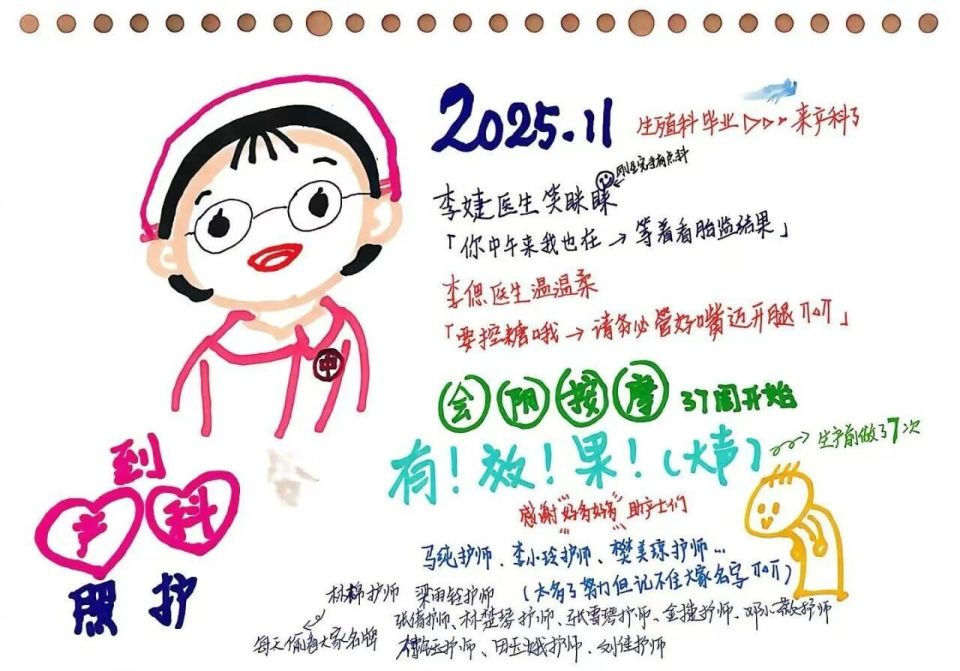 2025.11
生殖科毕业▷▷▷来产科了
刚坐完诊有点科
李婕医生笑眯眯
「你中午来我也在→等着看胎监结果」
李偲医生温温柔
「要控糖哦→请务必管好嘴迈开腿TT^TT」
中
会阴按摩 37周开始
有！效！果！(大声)
生产前做了7次
到
产科
照护
感谢"好多好多"助产士们
马纯护师、李小玲护师、樊美琼护师…
(太多了努力但记不住大家名字TT^TT)
林棉护师 梁雨铨护师
张倩护师、林楚琴护师、张雪琴护师、金捷护师、邓小敏护师
每天偷看大家名牌
护师、田玉娥护师、刘佳护师